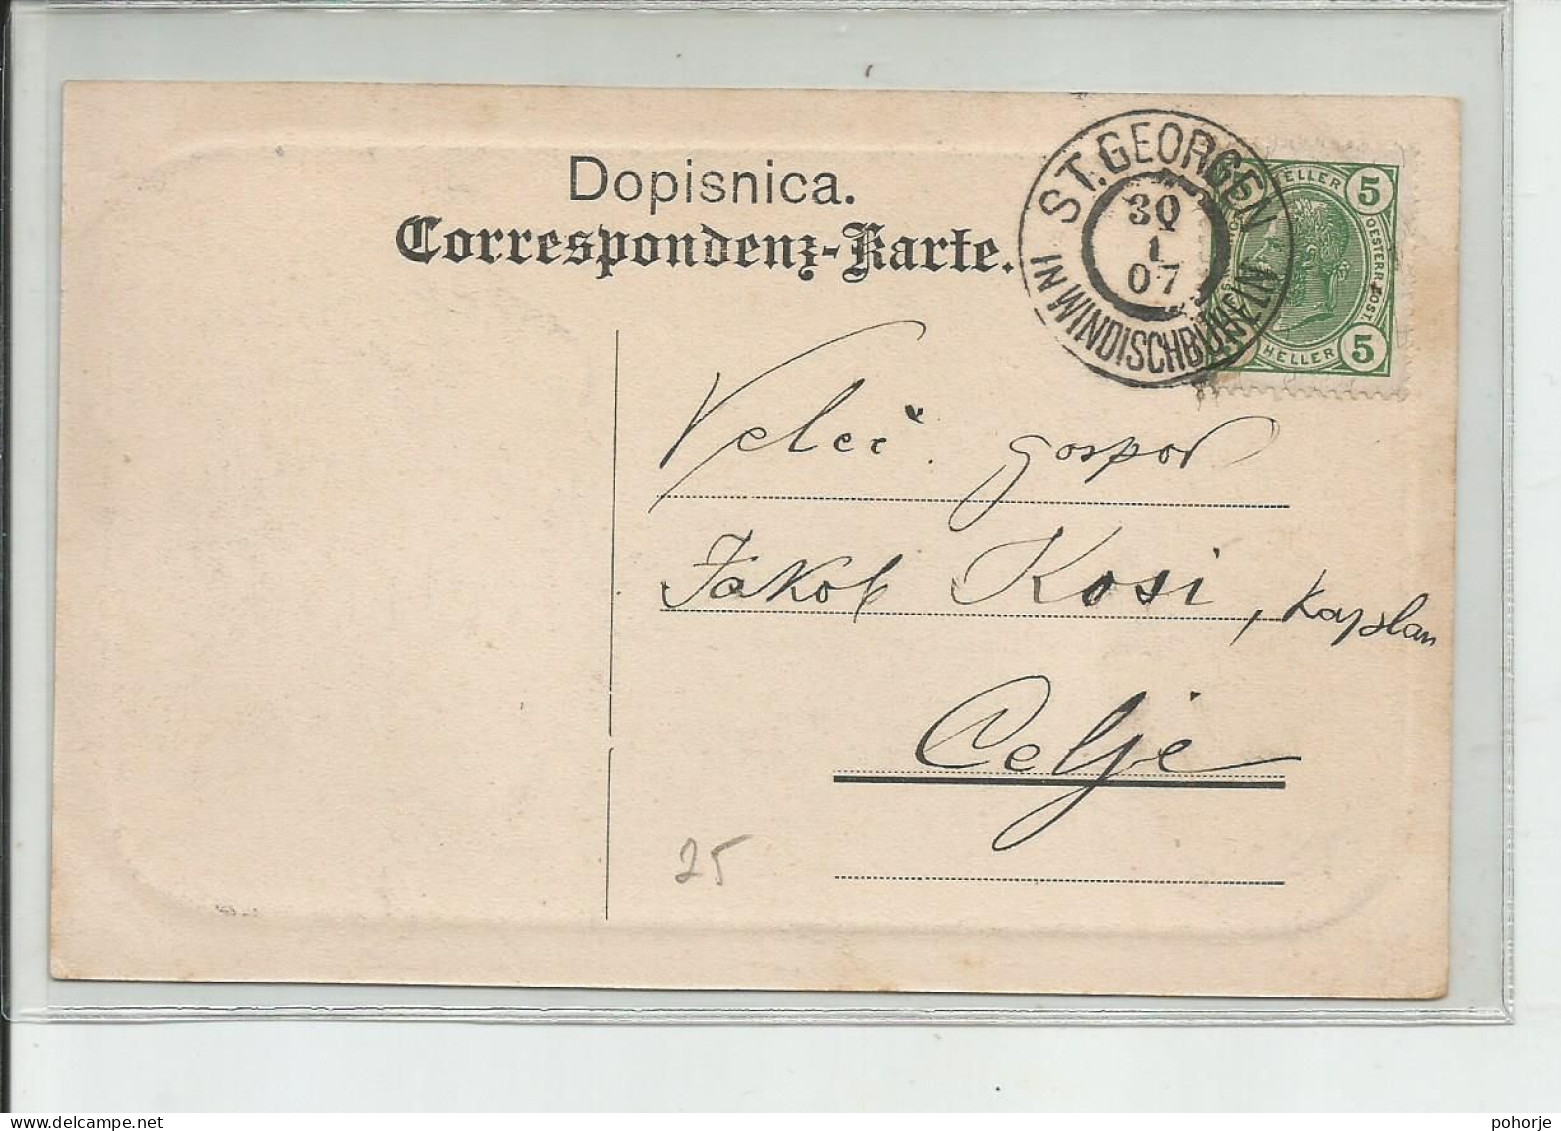 Dopisnica.
Correspondenz-Karte.
ST. GEORGEN
IN WINDISCHBÜHELN
30
1
07
HELLER 5
OESTERR. POST.
HELLER 5
Veleč. gospod
Jakob Kosi, Kaplan
Celje
25
www.delcampe.net
pohorje